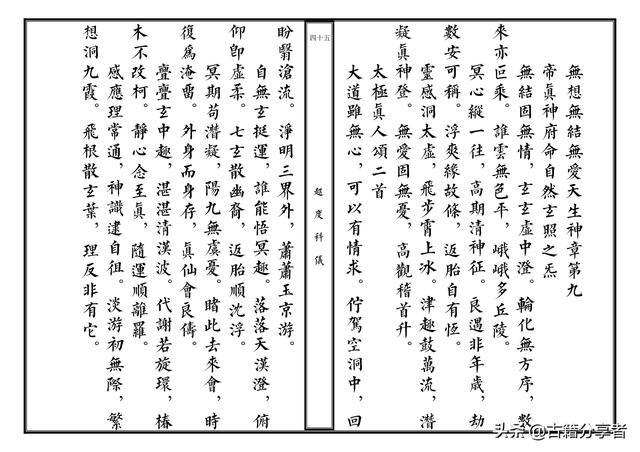 無想無結無愛天生神章第九
帝真神府命自然玄照之炁
無結固無情，玄玄虛中澄。輪化無方序，數
來亦叵乘。誰雲無色平，峨峨多丘陵。
冥心縱一往，高期清神征。良遇非年歲，劫
數安可稱。浮爽緣故條，返胎自有恆。
靈感洞太虛，飛步霄上冰。津趣鼓萬流，潛
凝真神登。無愛固無憂，高觀稽首升。
太極真人頌二首
大道雖無心，可以有情求。佇駕空洞中，回
四十五
超度科儀
盼翳滄流。淨明三界外，蕭蕭玉京游。
自無玄挺運，誰能悟冥趣。落落天漢澄，俯
仰即虛柔。七玄散幽裔，返胎順沈浮。
冥期苟潛凝，陽九無虞憂。睹此去來會，時
復為淹留。外身而身存，真仙會良儔。
亹亹玄中趣，湛湛清漢波。代謝若旋環，椿
木不改柯。靜心念至真，隨運順離羅。
感應理常通，神識逮自徂。淡游初無際，繁
想洞九霞。飛根散玄葉，理反非有它。
头条@古籍分享者